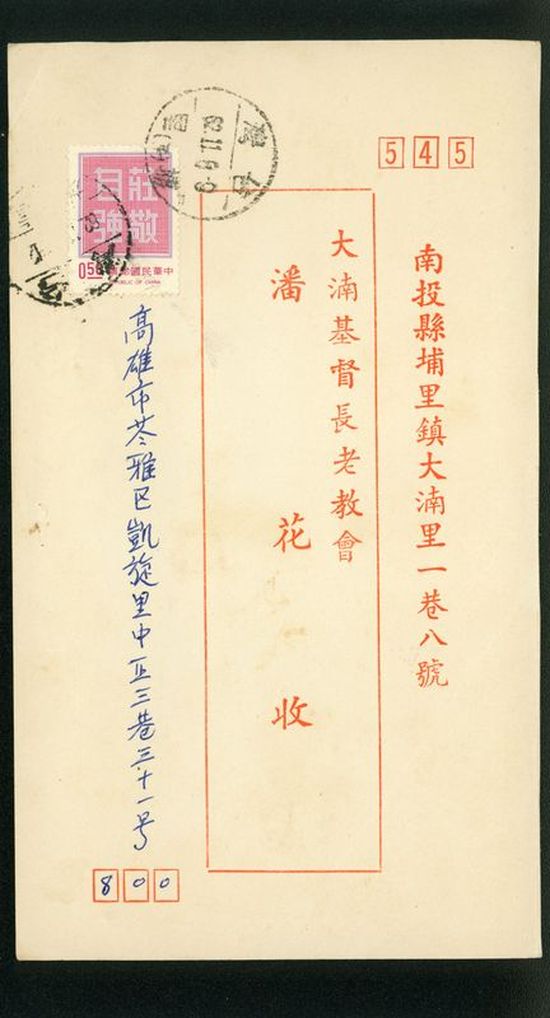 545
南投縣埔里鎮大湳里一巷八號
大湳基督長老教會
潘花收
莊敬自強
0.50
中華民國郵票
REPUBLIC OF CHINA
高雄市苓雅區凱旋里中正三巷三十一号
800